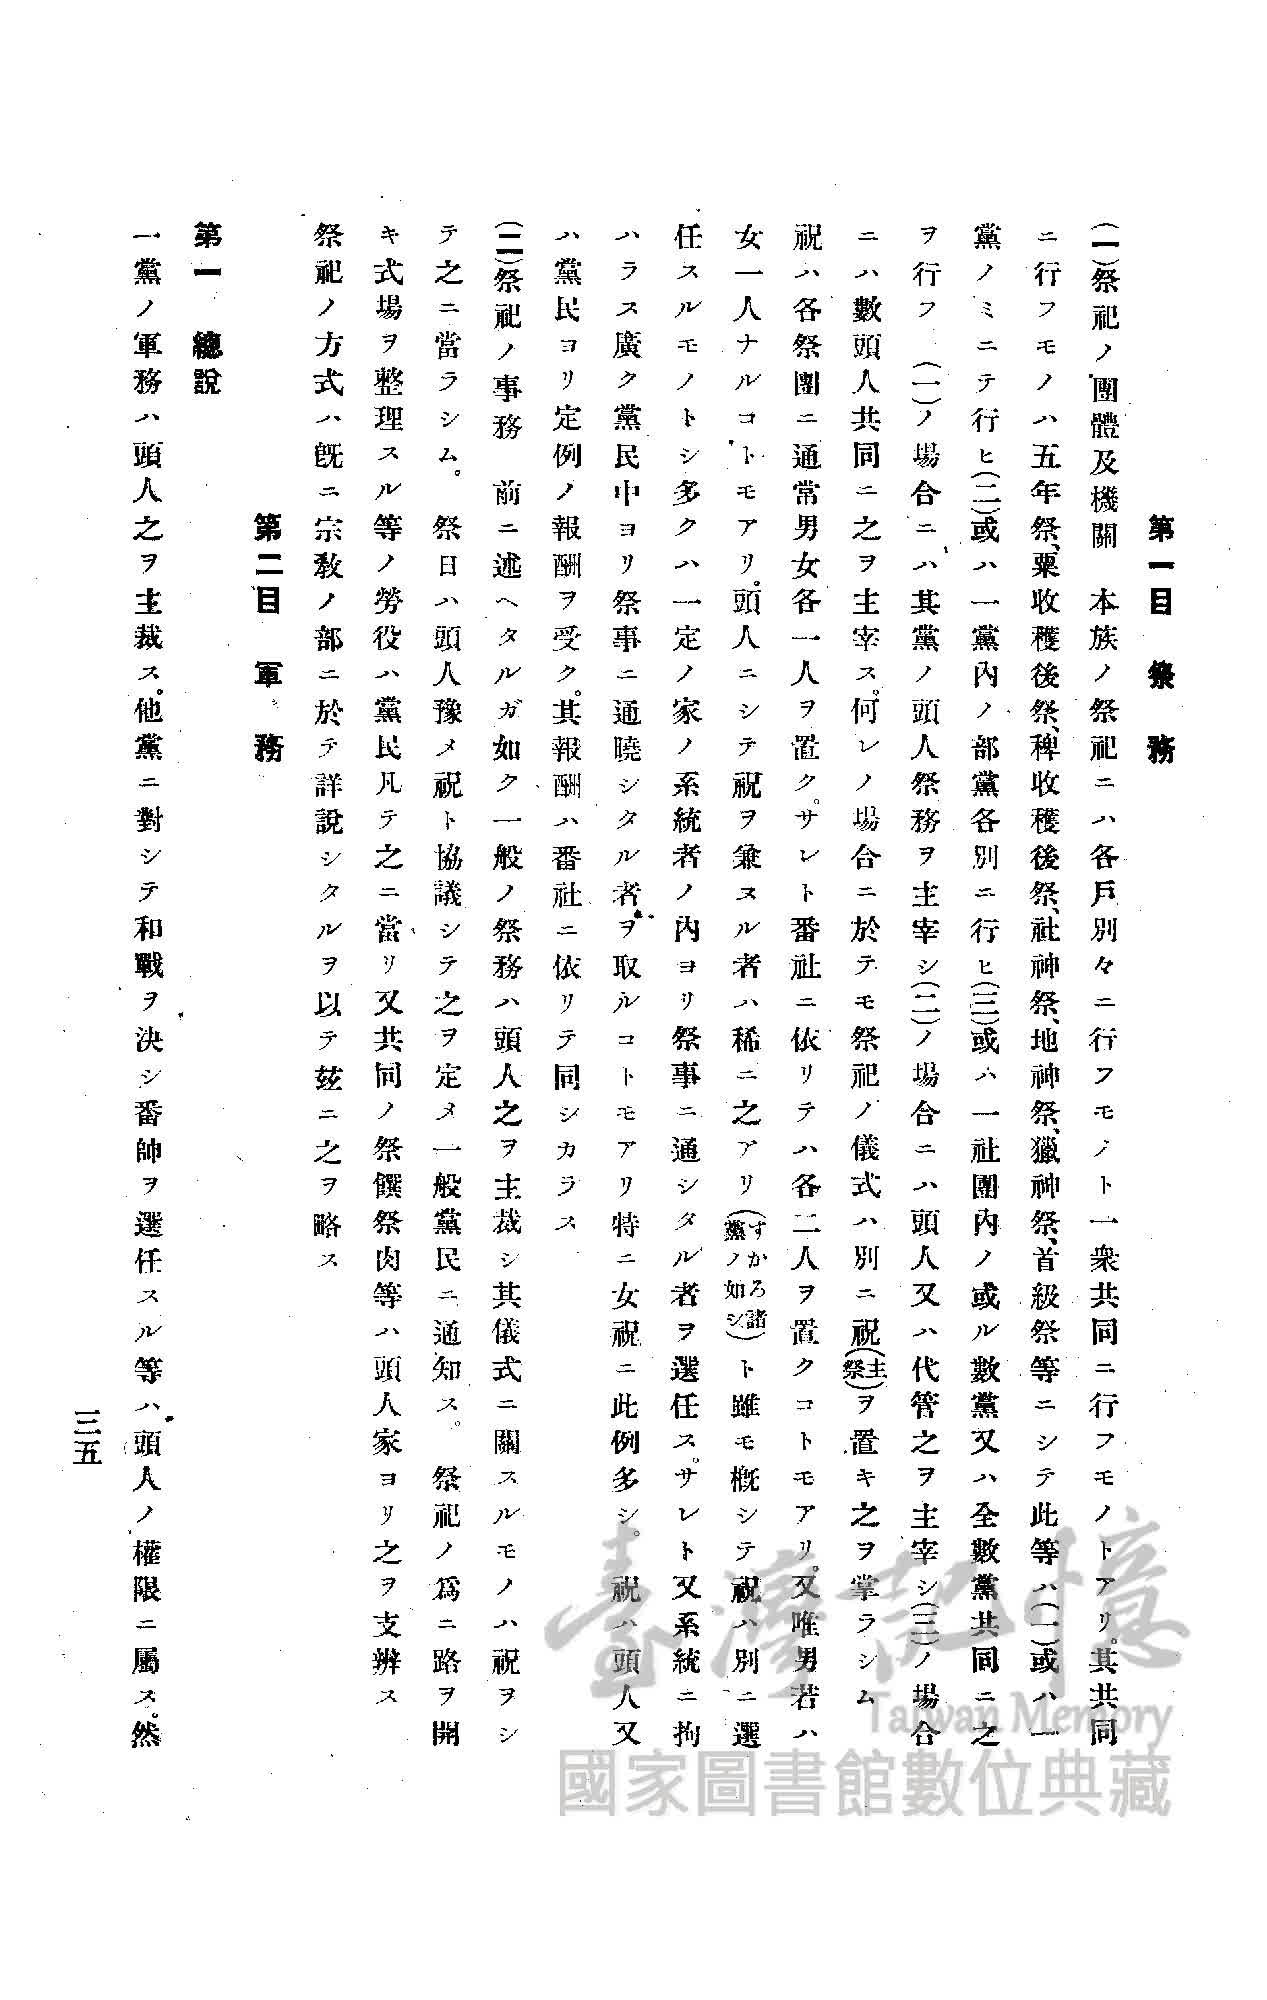 第一目　祭　務
(一)祭祀ノ團體及機關　本族ノ祭祀ニハ各戶別々ニ行フモノト一衆共同ニ行フモノトアリ。其共同
ニ行フモノハ五年祭、粟收穫後祭、稗收穫後祭、社神祭、地神祭、獵神祭、首級祭等ニシテ此等ハ(一)或ハ一
黨ノミニテ行ヒ(二)或ハ一黨內ノ部黨各別ニ行ヒ(三)或ハ一社團內ノ或ル數黨又ハ全數黨共同ニ之
ヲ行フ　(一)ノ場合ニハ其黨ノ頭人祭務ヲ主宰シ(二)ノ場合ニハ頭人又ハ代管之ヲ主宰シ(三)ノ場合
ニハ數頭人共同ニ之ヲ主宰ス。何レノ場合ニ於テモ祭祀ノ儀式ハ別ニ祝(主祭)ヲ置キ之ヲ掌ラシム
祝ハ各祭團ニ通常男女各一人ヲ置ク。サレト番社ニ依リテハ各二人ヲ置クコトモアリ。又唯男若ハ
女一人ナルコトモアリ。頭人ニシテ祝ヲ兼ヌル者ハ稀ニ之アリ(すかろ諸黨ノ如シ)ト雖モ槪シテ祝ハ別ニ選
任スルモノトシ多クハ一定ノ家ノ系統者ノ內ヨリ祭事ニ通シタル者ヲ選任ス。サレト又系統ニ拘
ハラス廣ク黨民中ヨリ祭事ニ通曉シタル者ヲ取ルコトモアリ特ニ女祝ニ此例多シ。祝ハ頭人又
ハ黨民ヨリ定例ノ報酬ヲ受ク。其報酬ハ番社ニ依リテ同シカラス
(二)祭祀ノ事務　前ニ述ヘタルガ如ク一般ノ祭務ハ頭人之ヲ主裁シ其儀式ニ關スルモノハ祝ヲシ
テ之ニ當ラシム。　祭日ハ頭人豫メ祝ト協議シテ之ヲ定メ一般黨民ニ通知ス。　祭祀ノ爲ニ路ヲ開
キ式場ヲ整理スル等ノ勞役ハ黨民凡テ之ニ當リ又共同ノ祭饌祭肉等ハ頭人家ヨリ之ヲ支辨ス
祭祀ノ方式ハ旣ニ宗敎ノ部ニ於テ詳說シタルヲ以テ玆ニ之ヲ略ス
第二目　軍　務
第一　總說
一黨ノ軍務ハ頭人之ヲ主裁ス。他黨ニ對シテ和戰ヲ決シ番帥ヲ選任スル等ハ頭人ノ權限ニ屬ス。然
三五
臺灣記憶
Taiwan Memory
國家圖書館數位典藏